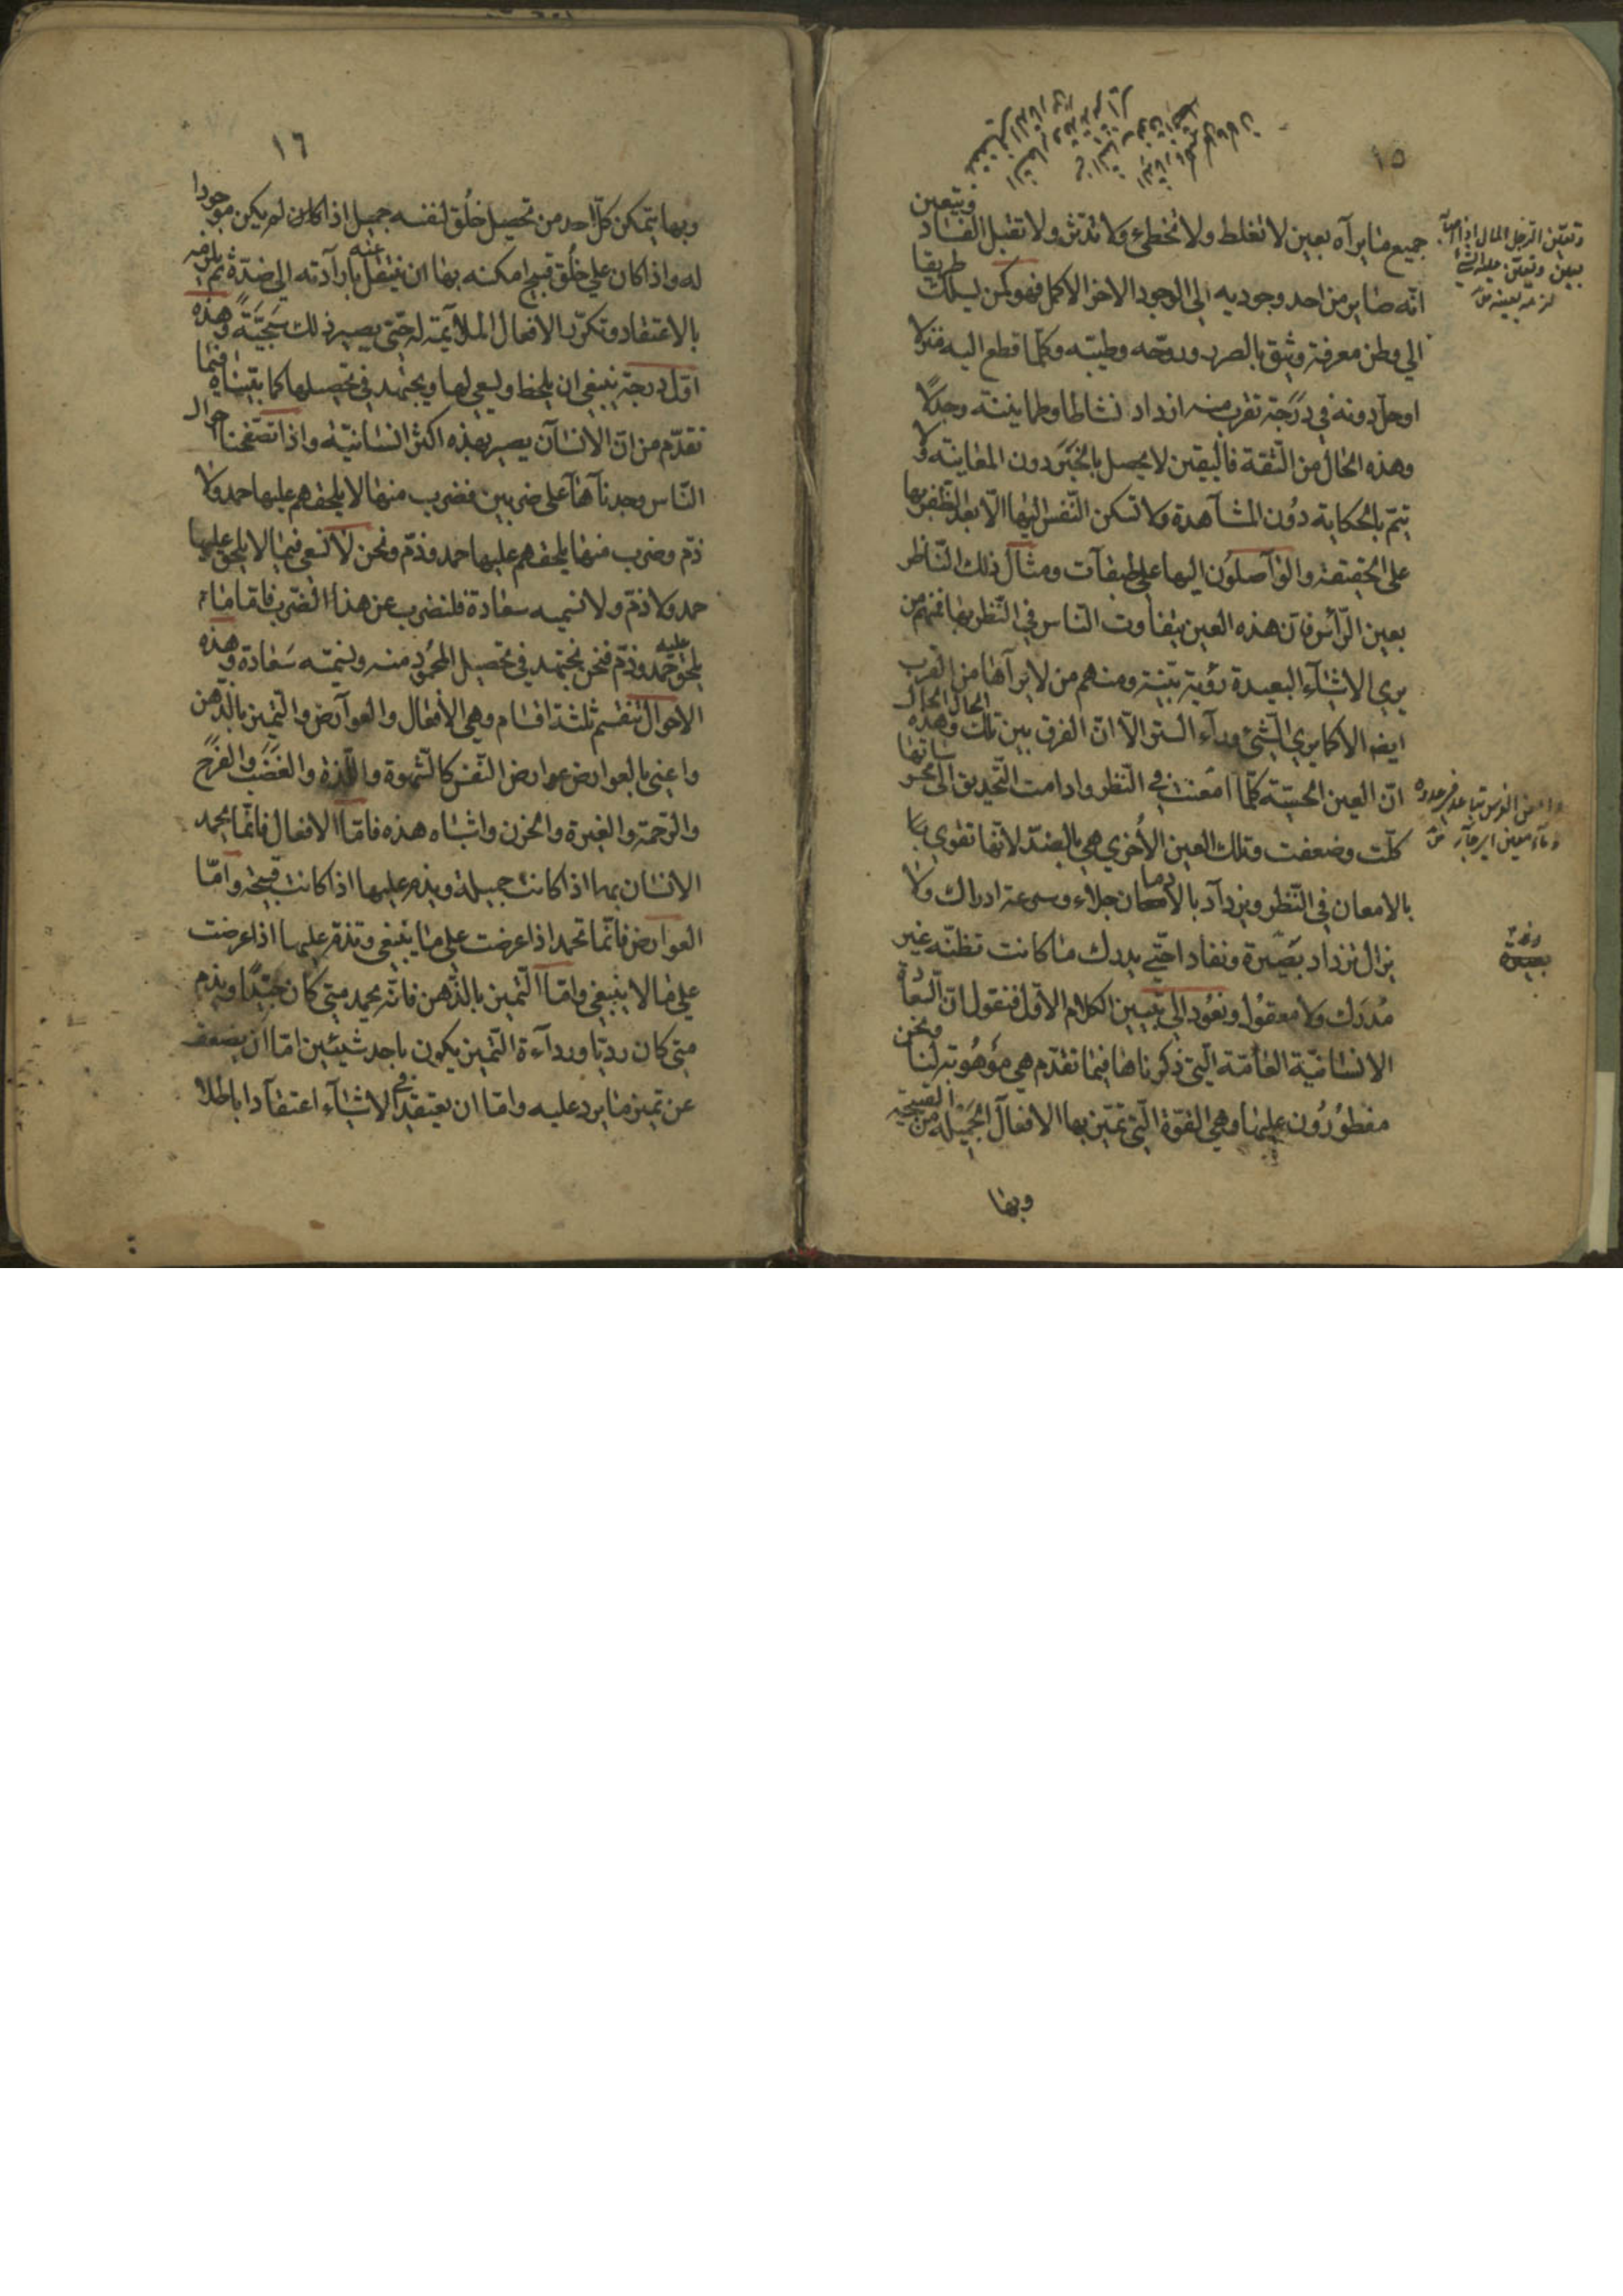 ١٥
ويتعين
جميع ما يراه بعين لا تغلط ولا تخطئ ولا تدثر ولا تقبل الفساد
انه صاير من احد وجوديه الى الوجود الاخر الاكمل فهو كمن يسلك طريقا
الي وطن معرفة وثيق بالصرد وروحه وطيبه وكلما قطع اليه منزلا
اوحل دونه في درجة تقرب منه ازداد نشاطا وطمانينة وجذلا
وهذه الحال من الثقة فاليقين لا يحصل بالخبر دون المعاينة ولا
يتم بالحكاية دون المشاهدة ولا تسكن النفس اليها الا بعد الظفر بها
على الحقيقة والواصلون اليها على طبقات ومثال ذلك الناظر
بعين الراس فان هذه العين يتفاوت الناس في النظر بها فمنهم من
يري الاشياء البعيدة رؤية بينة ومنهم من لا يراها من القرب
ايضا الا كما يري الشئ وراء الستر الا ان الفرق بين تلك الحال وهذه الحال
ان العين الحسية كلما امعنت في النظر وادامت التحديق الى محسوساتها
كلت وضعفت وتلك العين الأخري هي بالضد لانها تقوي بها
بالامعان في النظر ويزداد بالادمان جلاء وسرعة ادراك ولا
يزال تزداد بصيرة ونفاد احتي يدرك ما كانت تظنه غير
مدرك ولا معقولا ونعود الى تبيين الكلام الاول فنقول ان السعادة
الانسانية العامة التي ذكرناها فيما تقدم هي موهوبة لنا ونحن
مفطورون عليها وهي القوة التي تميز بها الافعال الجميلة من القبيحة
وبها
وتعين الرجل المال اذا اصابه
بعين وتعين عليه الشئ
لزمه بعينه ص
بصيرة
١٦
وبها يتمكن كل احد من تحصيل خلق لنفسه جميل اذا كان لم يكن موجودا
له واذا كان علي خلق قبيح امكنه بها ان ينتقل عنه بارادته الي ضده ثم يلزمه
بالاعتقاد وتكرر الافعال الملايمة له حتى يصير ذلك سجية وهذه
اول درجة ينبغي ان يلحظ ويسعي لها ويجتهد في تحصيلها كما بيناه فيما
تقدم من ان الانسان يصير بهذه اكثر انسانية واذا تصفحنا احوال
الناس وجدناها على ضربين فضرب منها لا يلحقهم عليها حمد ولا
ذم وضرب منها يلحقهم عليها حمد وذم ونحن لا نسعي فيما لا يلحق عليها
حمد ولا ذم ولا نسميه سعادة فلنضرب عن هذا الضرب فاما ما
يلحق عليه حمد وذم فنحن نجتهد في تحصيل المحمود منه ونسميه سعادة وهذه
الاحوال تنقسم ثلثة اقسام وهي الافعال والعوارض والتميز بالذهن
واعنى بالعوارض عوارض النفس كالشهوة واللذة والغضب والفرح
والرحمة والغيرة والحزن واشباه هذه فاما الافعال فانما يحمد
الانسان بها اذا كانت جميلة ويذم عليها اذا كانت قبيحة واما
العوارض فانما تحمد اذا عرضت علي ما ينبغي وتذم عليها اذا عرضت
علي ما لا ينبغي واما التميز بالذهن فانه يحمد متي كان جيدا ويذم
متى كان رديا ورداءة التميز يكون باحد شيئين اما ان يضعف
عن تميز ما يرد عليه واما ان يعتقد في الاشياء اعتقادا باطلا